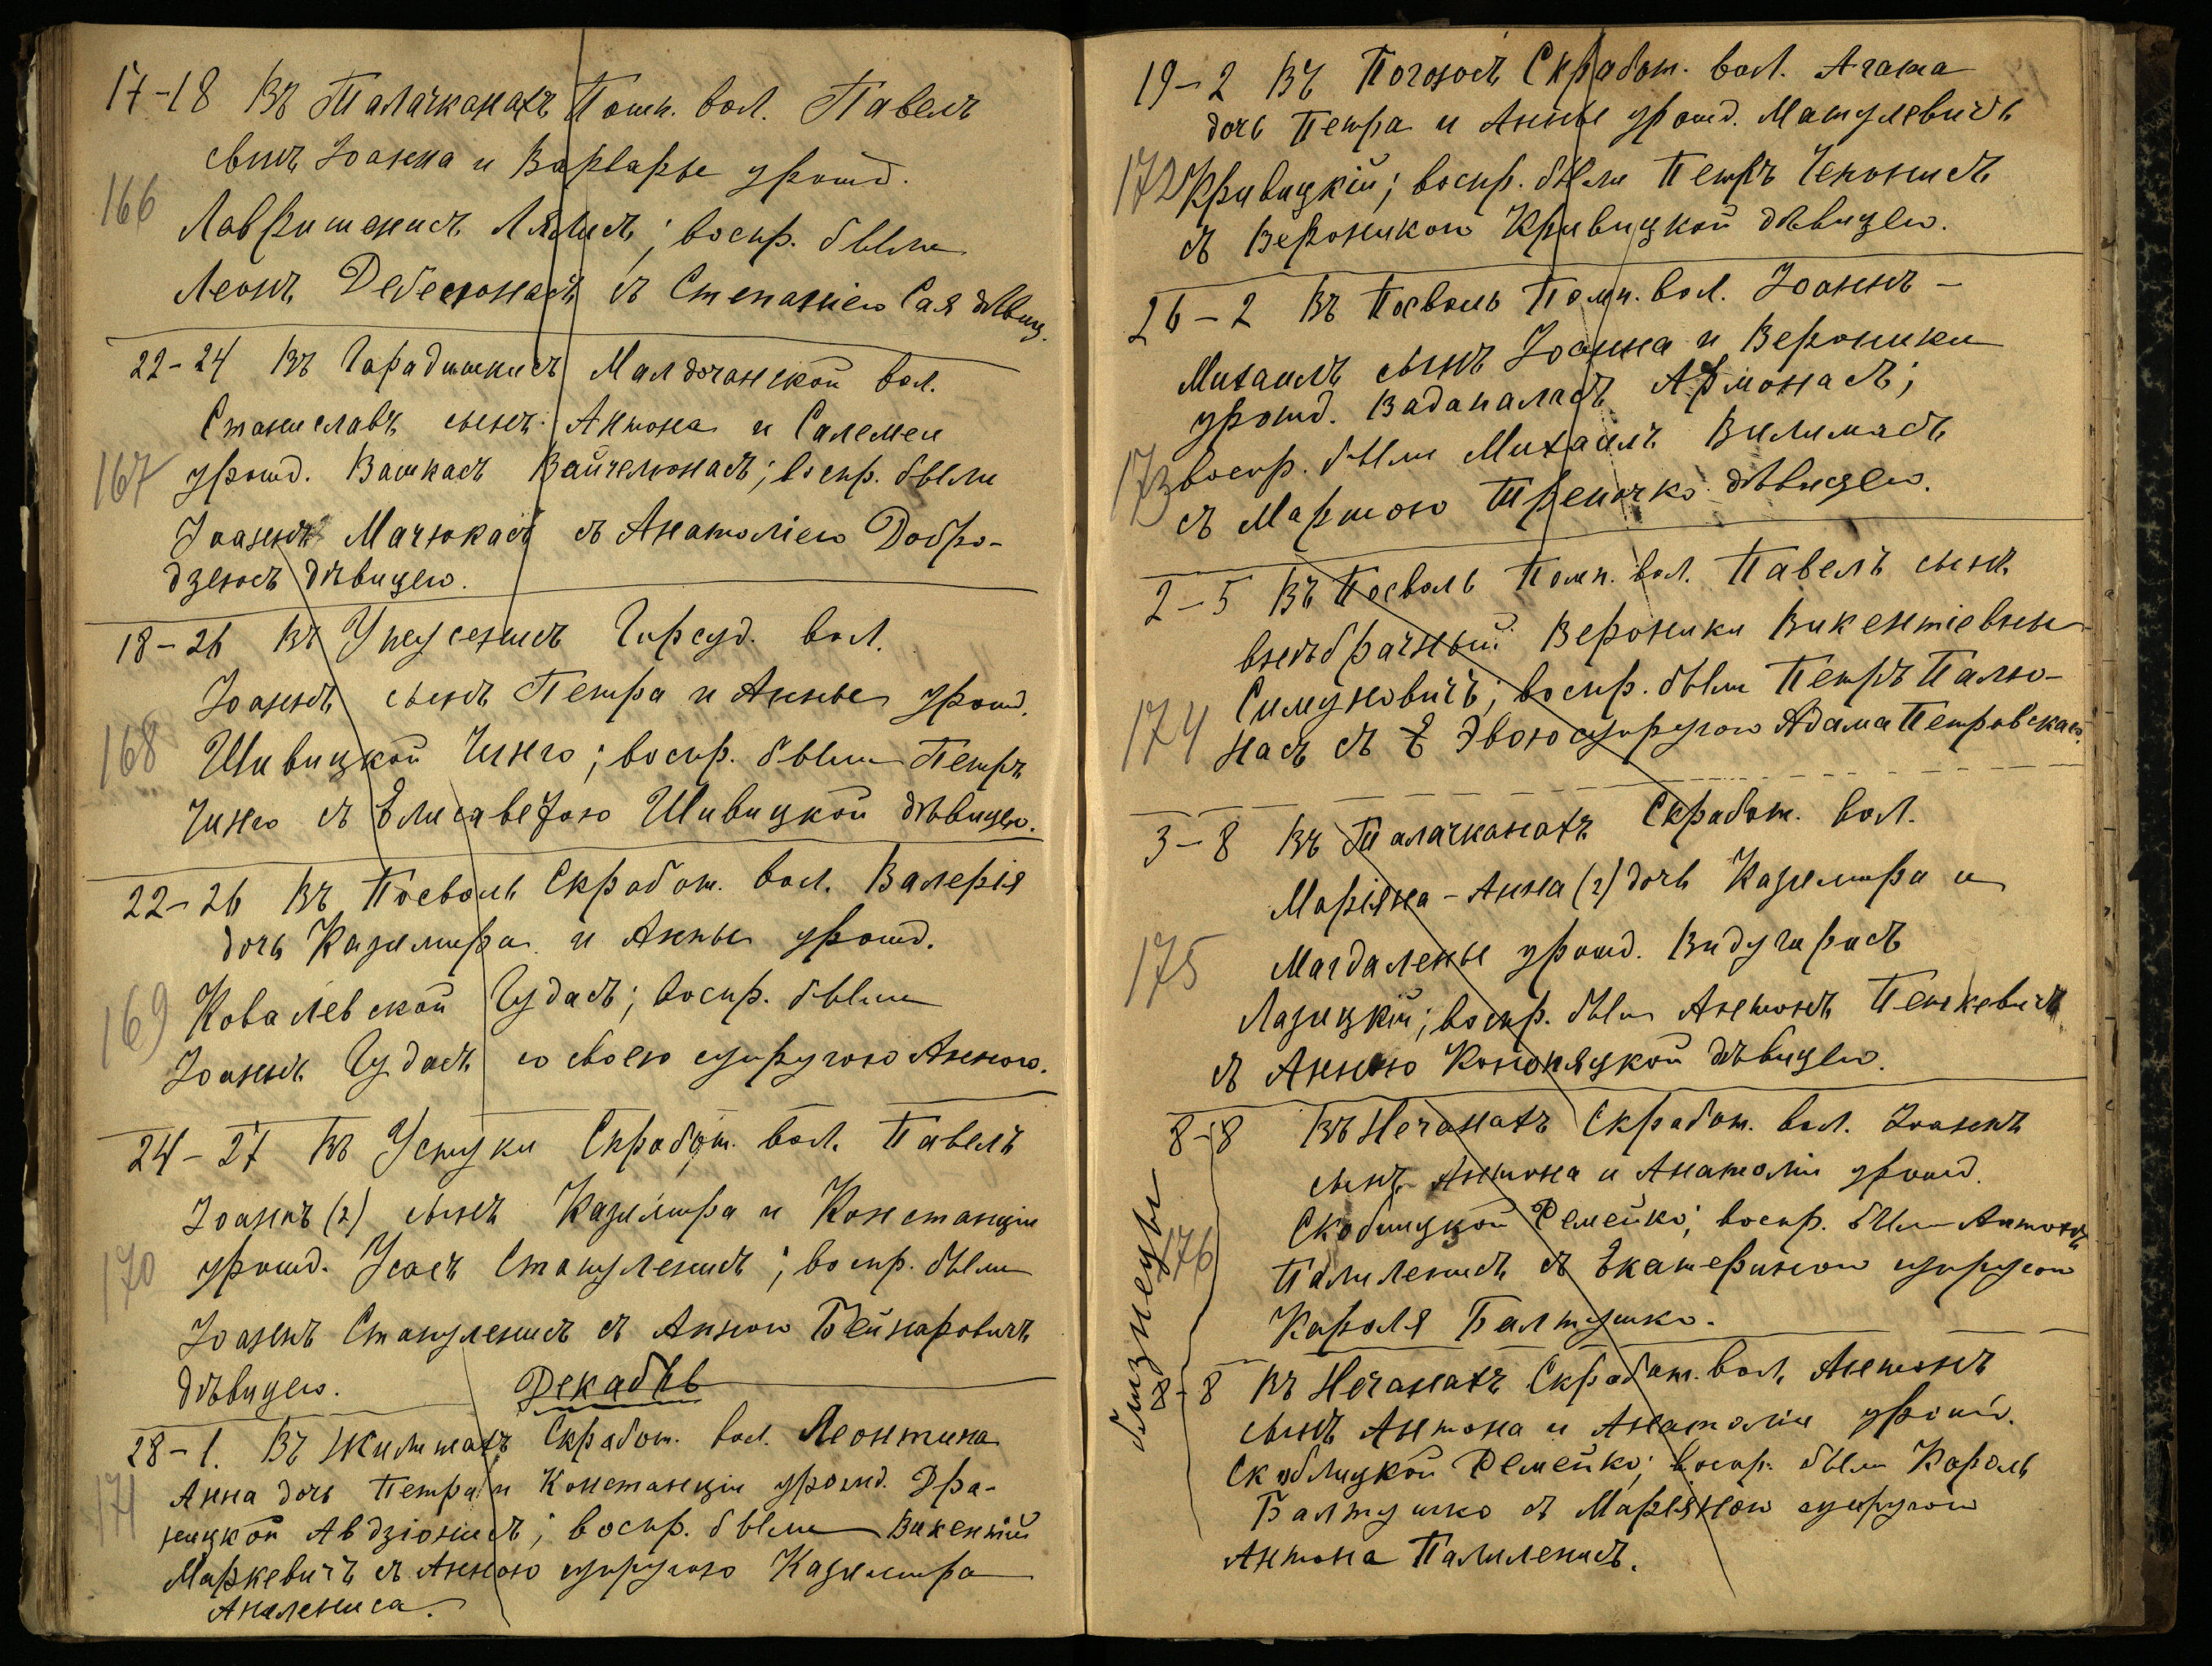 17-18 Въ Талачканахъ Помп. вол. Павелъ
сынъ Іоанна и Варвары урожд.
166
Лавритенисъ Лялисъ; воспр. были
Леонъ Дебесюнасъ съ Стенаніею Сая дѣвиц.
22-24 Въ Гарадишкисъ Малдочанской вол.
Станиславъ сынъ Антона и Салемеи
167 урожд. Вашкасъ Вайчелюнасъ; воспр. были
Іоаннъ Мачюкасъ съ Анатоліею Добро-
дзеюсъ дѣвицею.
18-26 Въ Упусенисъ Гирсуд. вол.
Іоаннъ сынъ Петра и Анны урожд.
168 Шивицкой Чинго; воспр. были Петръ
Чинго съ Елисаветою Шивицкой дѣвицею.
22-26 Въ Посволь Скработ. вол. Валерія
дочь Казимира и Анны урожд.
169 Ковалевской Гудасъ; воспр. были
Іоаннъ Гудасъ со своею супругою Анною.
24-27 Въ Успуки Скработ. вол. Павелъ
Іоаннъ (2) сынъ Казимира и Констанціи
170 урожд. Усасъ Стапуленисъ; воспр. были
Іоаннъ Стапуленисъ съ Анною Бейнаровичъ
дѣвицею.
Декабрь
28-1. Въ Жилишахъ Скработ. вол. Леонтина
171 Анна дочь Петра и Констанціи урожд. Дра-
ницкой Авдзіонисъ; воспр. были Викентій
Маркевичъ съ Анною супругою Казимира
Анилениса.
19-2 Въ Погосъ Скработ. вол. Агата
дочь Петра и Анны урожд. Матулевичъ
172 Кривицкій; воспр. были Петръ Чепонисъ
съ Вероникою Кривицкой дѣвицею.
26-2 Въ Посволь Помп. вол. Іоаннъ-
Михаилъ сынъ Іоанна и Вероники
урожд. Вадапаласъ Армонасъ;
173 воспр. были Михаилъ Вилимасъ
съ Мартою Треночко дѣвицею.
2-5 Въ Посволь Помп. вол. Павелъ сынъ
внѣбрачный Вероники Викентіевны
Симуновичъ; воспр. были Петръ Палю-
174 насъ съ Эвою супругою Адама Петровскаго.
3-8 Въ Талачканахъ Скработ. вол.
Маріяна-Анна (2) дочь Казимира и
175 Магдалены урожд. Видугирасъ
Лазицкій; воспр. были Антонъ Петкевичъ
съ Анною Конопляцкой дѣвицею.
8-8 Въ Нечанахъ Скработ. вол. Іоаннъ
сынъ Антона и Анатоліи урожд.
близнецы
176 Скоблицкой Ремейко; воспр. были Антонъ
Палиленисъ съ Екатериною супругою
Кароля Балтушко.
8-8 Въ Нечанахъ Скработ. вол. Антонъ
сынъ Антона и Анатоліи урожд.
Скоблицкой Ремейко; воспр. были Кароль
Балтушко съ Маріяною супругою
Антона Палиленисъ.